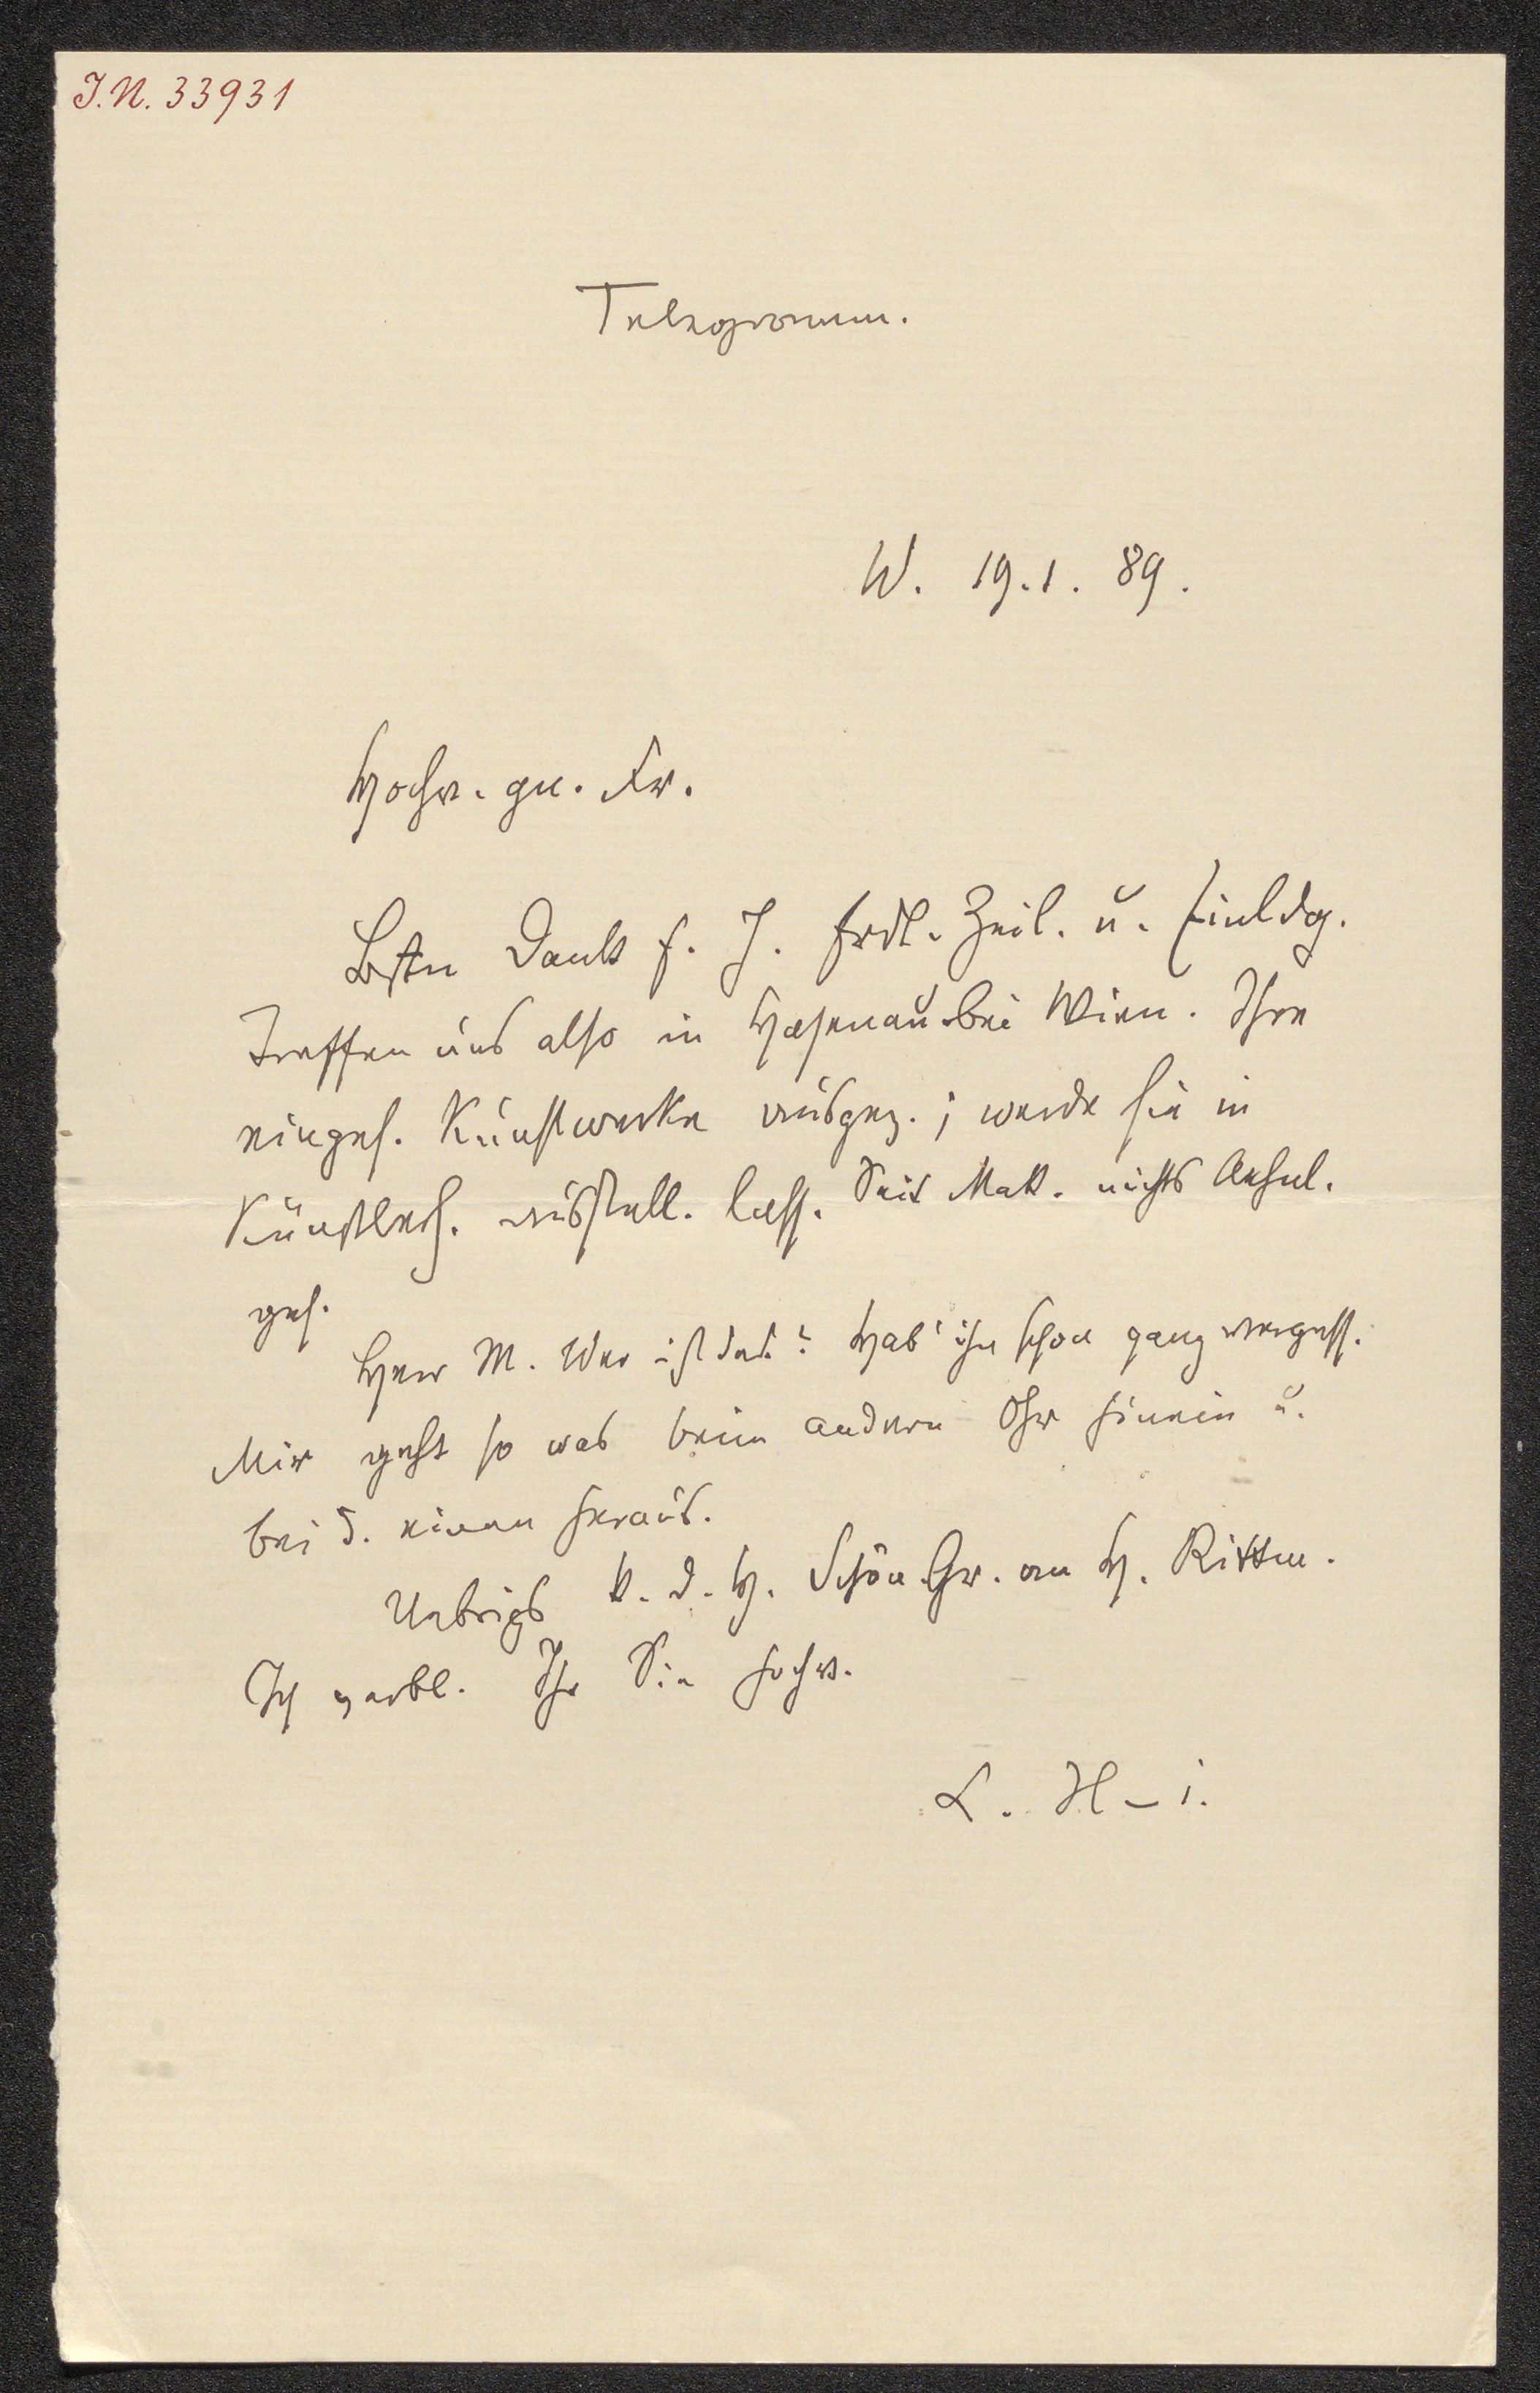 J.N. 33931
Telegramm.
W. 19.1. 89.
Hochv. gn. Fr.
Bstn Dank f. J. frdl. Zeil. u. Einldg.
Treffen uns also in Hasenau bei Wien. Ihre
einges. Kunstwerke ausgez.; werde sie in
Künstlerh. ausstell. lass. Seit Mak. nichts Aehnl.
ges.
Herr M. Wer ist das? Hab' ihn schon ganz vergess.
Mir geht so was beim andern Ohr hinein u.
bei d. einen heraus.
Uebrigs k. d. H. Schön Gr. an H. Rittm.
Ich verbl. Ihr Sie hochv.
L. H-i.